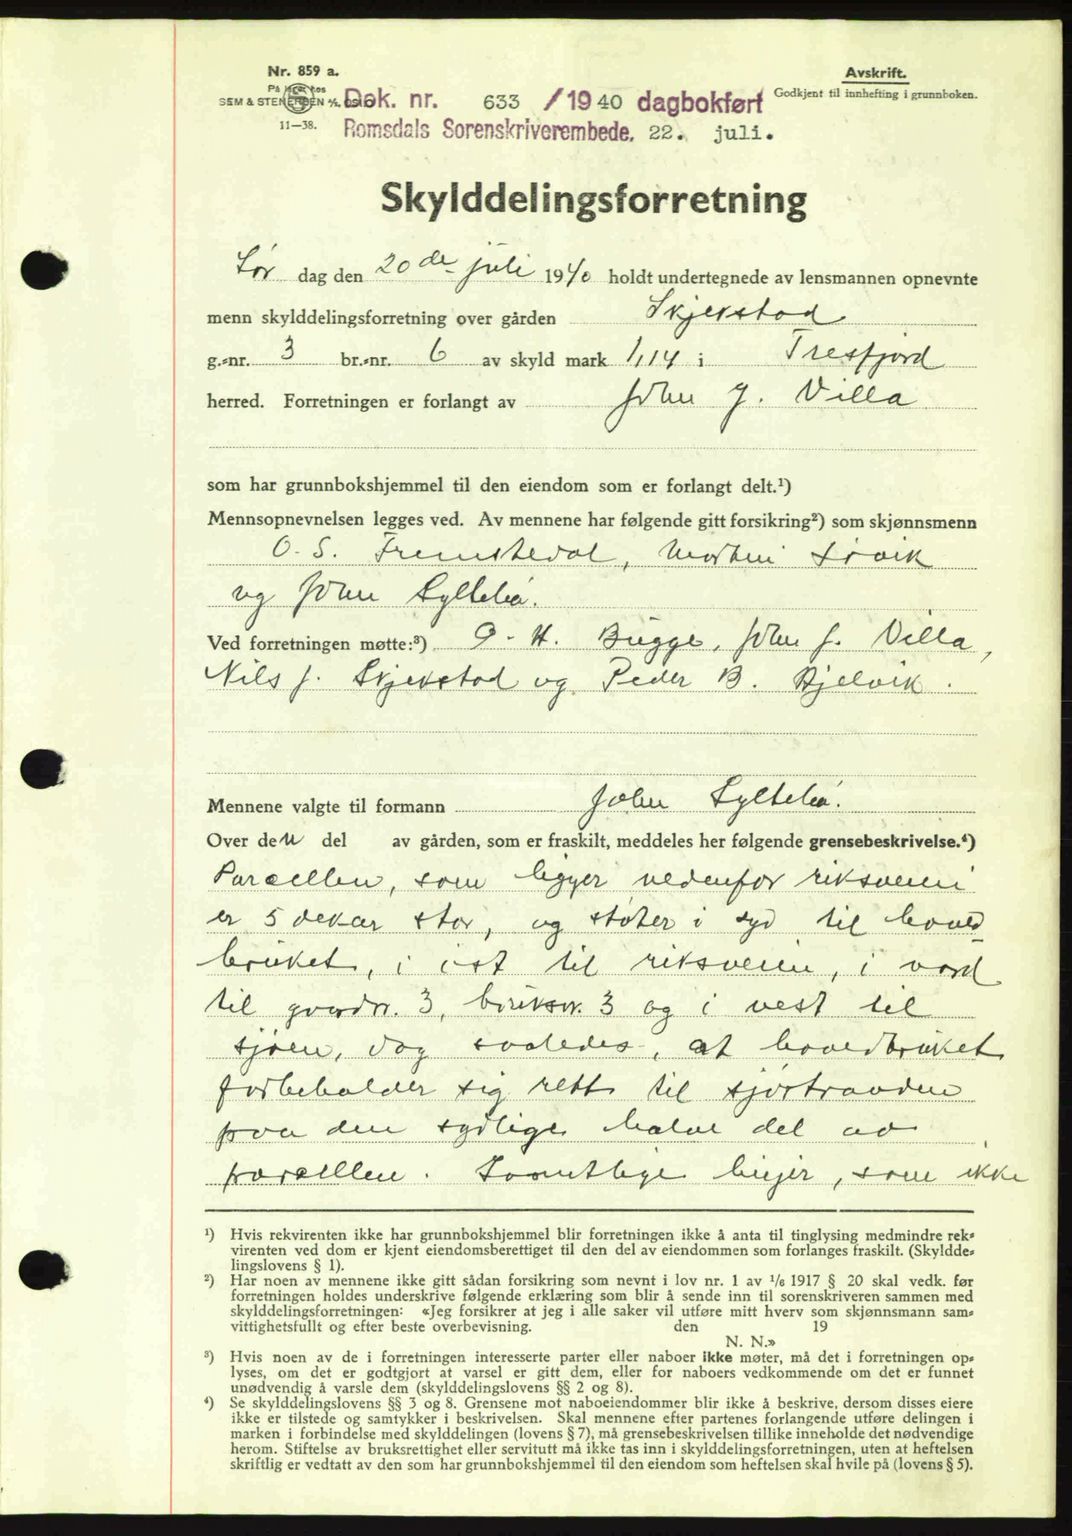 Nr. 859 a.
På lager hos
SEM & STENERSEN A/S, OSLO
11—38.
Avskrift.
Godkjent til innhefting i grunnboken.
Dok. nr. 633 /1940 dagbokført
Romsdals Sorenskriverembede. 22. juli.
Skylddelingsforretning
Lør dag den 20de juli 1940 holdt undertegnede av lensmannen opnevnte
menn skylddelingsforretning over gården Skjekstad
g.-nr. 3 br.-nr. 6 av skyld mark 1,14 i Tresfjord
herred. Forretningen er forlangt av John J. Villa
som har grunnbokshjemmel til den eiendom som er forlangt delt.¹)
Mennsopnevnelsen legges ved. Av mennene har følgende gitt forsikring²) som skjønnsmenn
O. S. Fremstedal, Morten Løvik
og John Syltebø.
Ved forretningen møtte:³) O. H. Bugge, John J. Villa,
Nils J. Skjekstad og Peder B. Hjelvik.
Mennene valgte til formann John Syltebø.
Over den del av gården, som er fraskilt, meddeles her følgende grensebeskrivelse.⁴)
Parcellen, som ligger nedenfor riksveien
er 5 dekar stor, og støter i syd til hoved-
bruket, i øst til riksveien, i nord
til gårdnr. 3, bruksnr. 3 og i vest til
sjøen, dog saaledes, at hovedbruket
forbeholder sig rett til sjøstranden
paa den sydlige halve del av
parcellen. Samtlige linjer, som ikke
¹) Hvis rekvirenten ikke har grunnbokshjemmel blir forretningen ikke å anta til tinglysing medmindre rek-
virenten ved dom er kjent eiendomsberettiget til den del av eiendommen som forlanges fraskilt. (Skyldde-
lingslovens § 1).
²) Har noen av mennene ikke gitt sådan forsikring som nevnt i lov nr. 1 av 1/6 1917 § 20 skal vedk. før
forretningen holdes underskrive følgende erklæring som blir å sende inn til sorenskriveren sammen med
skylddelingsforretningen: «Jeg forsikrer at jeg i alle saker vil utføre mitt hverv som skjønnsmann sam-
vittighetsfullt og efter beste overbevisning. den 19
N. N.»
³) Hvis noen av de i forretningen interesserte parter eller naboer ikke møter, må det i forretningen op-
lyses, om det er godtgjort at varsel er gitt dem, eller for naboers vedkommende om det er funnet
unødvendig å varsle dem (skylddelingslovens §§ 2 og 8).
⁴) Se skylddelingslovens §§ 3 og 8. Grensene mot naboeiendommer blir ikke å beskrive, dersom disses eiere
ikke er tilstede og samtykker i beskrivelsen. Skal mennene efter partenes forlangende utføre delingen i
marken i forbindelse med skylddelingen (lovens § 7), må grensebeskrivelsen tillike inneholde det nødvendige
herom. Stiftelse av bruksrettighet eller servitutt må ikke tas inn i skylddelingsforretningen, uten at heftelsen
skriftlig er vedtatt av den som har grunnbokshjemmel til den eiendom som heftelsen skal hvile på (lovens § 5).